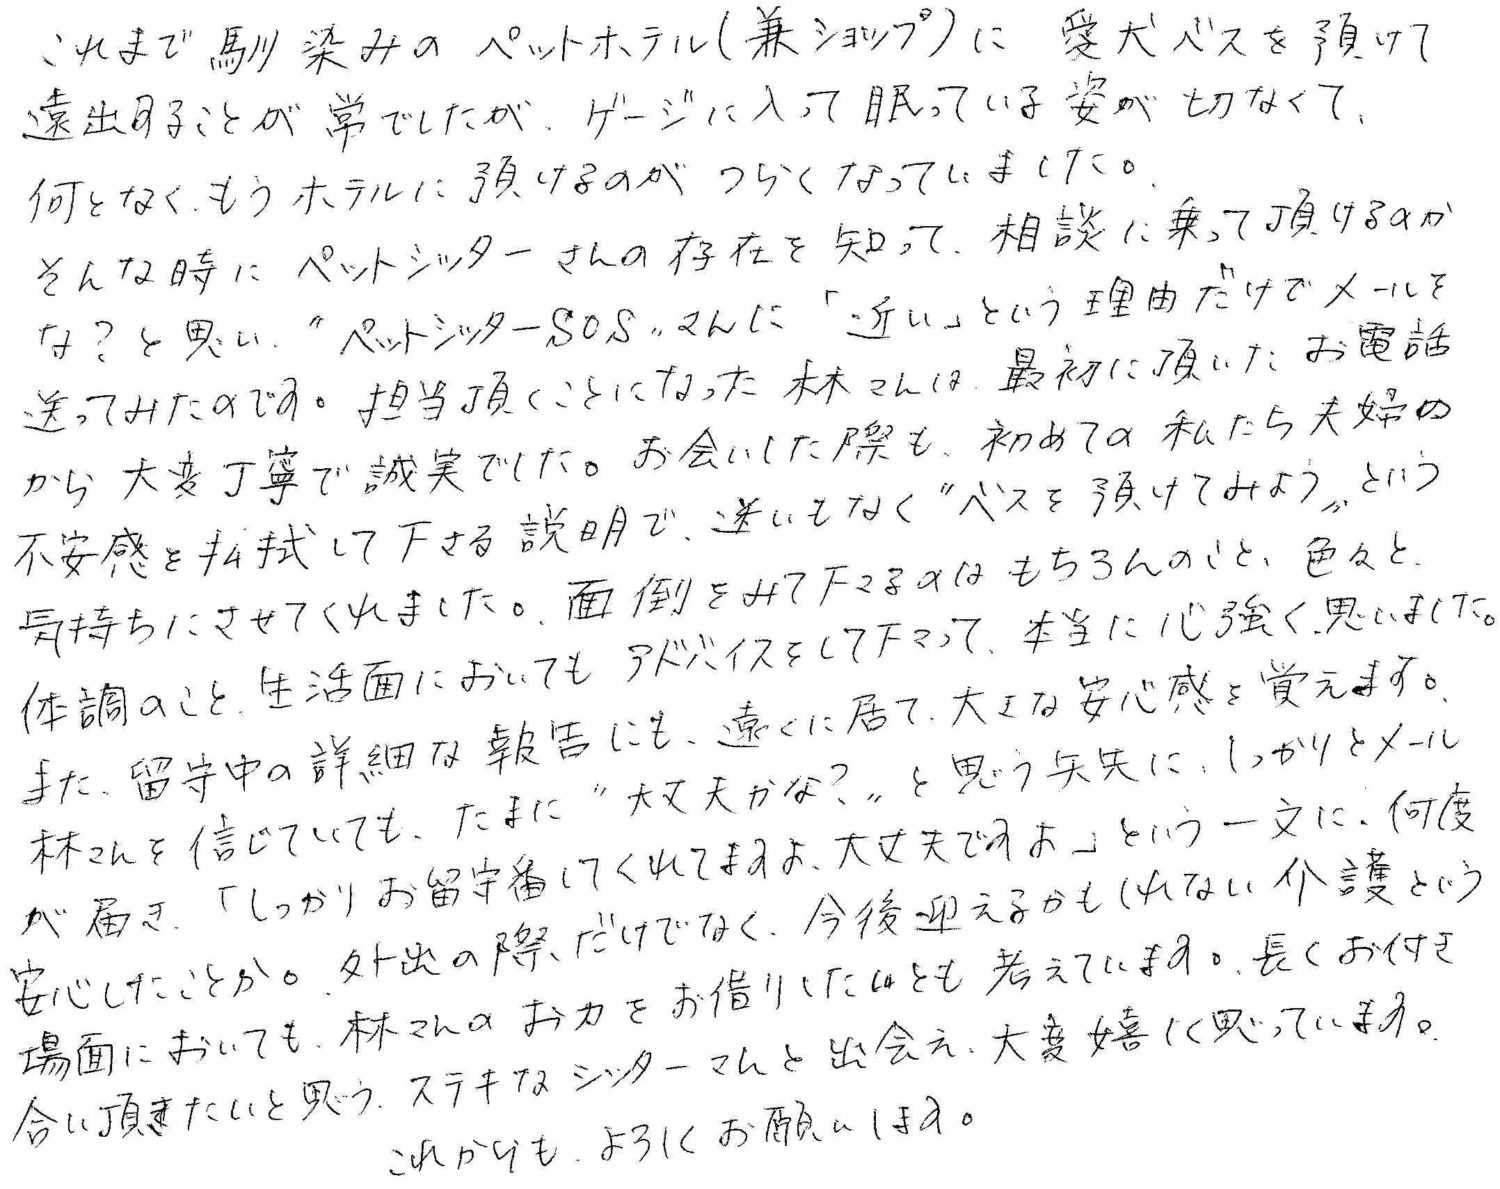 これまで馴染みのペットホテル(兼ショップ)に 愛犬ベスを預けて
遠出することが常でしたが、ゲージに入って眠っている姿が切なくて、
何となく、もうホテルに預けるのがつらくなっていました。
そんな時にペットシッターさんの存在を知って、相談に乗って頂けるのか
な?と思い、"ペットシッターSOS"さんに「近い」という理由だけでメールを
送ってみたのです。担当頂くことになった林さんは、最初に頂いたお電話
から大変丁寧で誠実でした。お会いした際も、初めての私たち夫婦の
不安感を払拭して下さる説明で、迷いもなく"ベスを預けてみよう"という
気持ちにさせてくれました。面倒をみて下さるのはもちろんのこと、色々と、
体調のこと、生活面においてもアドバイスをして下さって、本当に心強く思いました。
また、留守中の詳細な報告にも、遠くに居て、大きな安心感を覚えます。
林さんを信じていても、たまに"大丈夫かな?"と思う矢先に、しっかりとメール
が届き、「しっかりお留守番してくれてますよ、大丈夫ですよ」という一文に、何度
安心したことか。外出の際、だけでなく、今後迎えるかもしれない介護という
場面においても、林さんのお力をお借りしたいとも考えています。長くお付き
合い頂きたいと思う、ステキなシッターさんと出会え、大変嬉しく思っています。
これからも、よろしくお願いします。